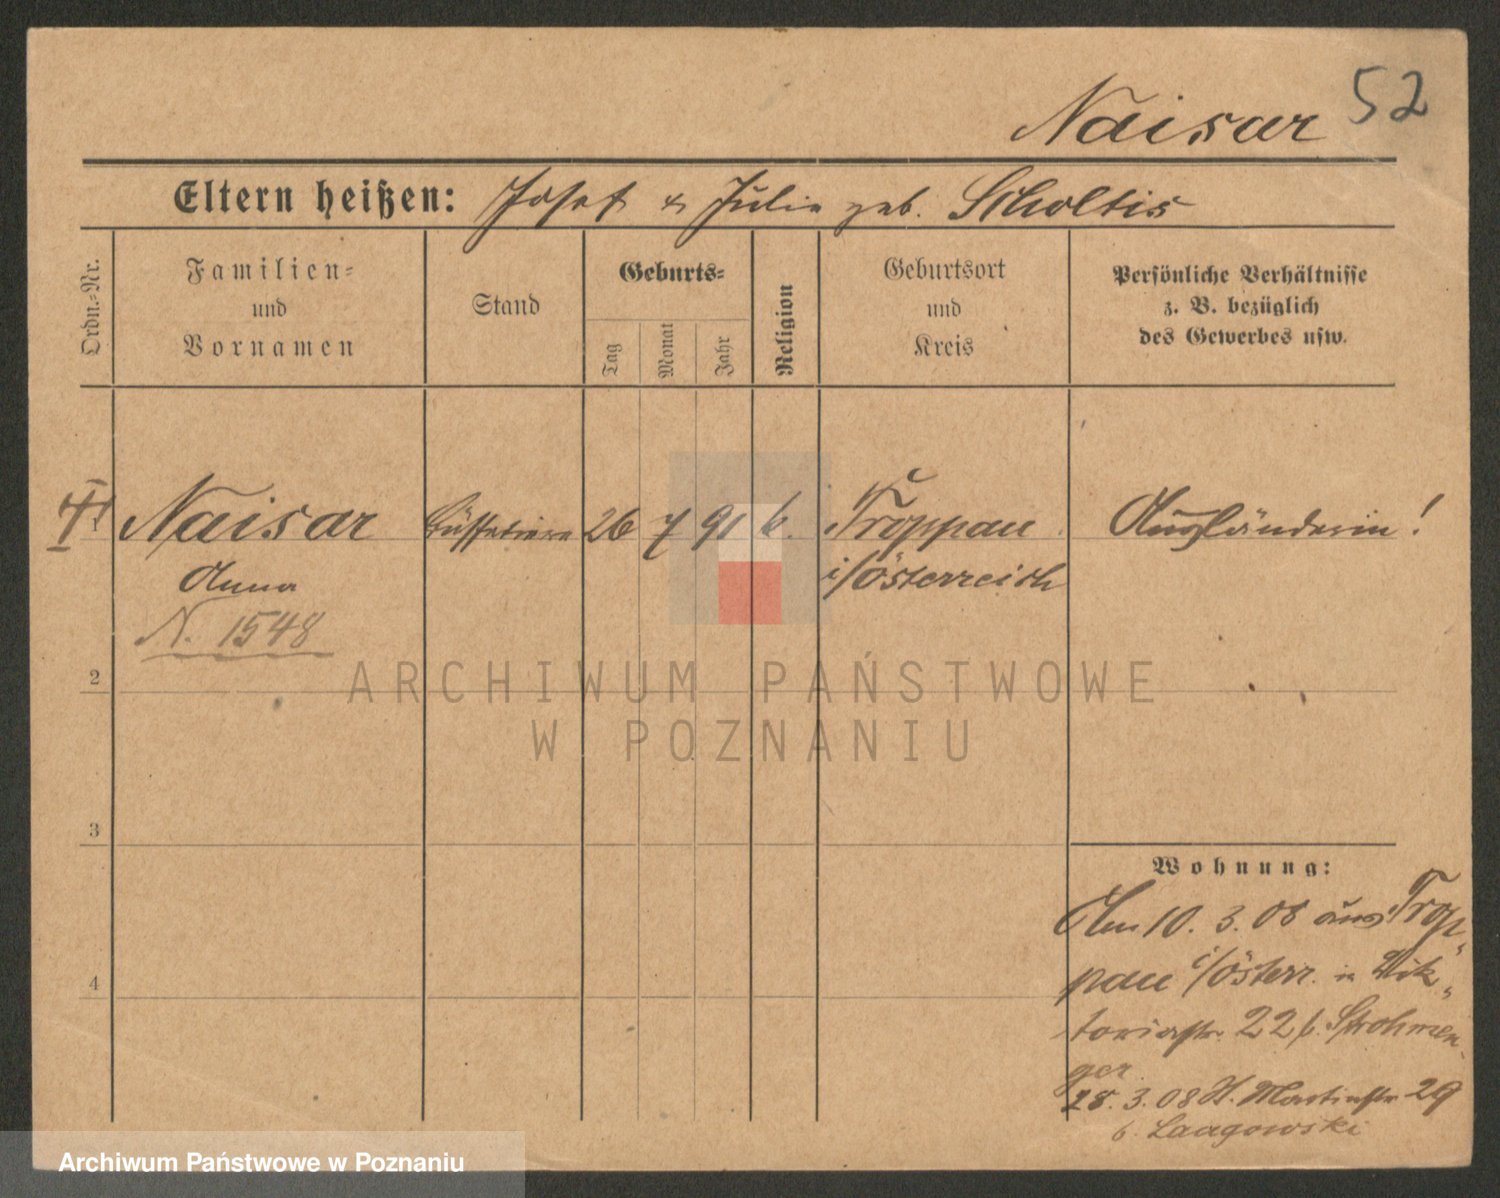 52
Naisar
Eltern heißen: Josef & Julie geb. Scholtis
Ordn.=Nr.
Familien=
und
Vornamen
Stand
Geburts=
Tag
Monat
Jahr
Religion
Geburtsort
und
Kreis
Persönliche Verhältnisse
z. B. bezüglich
des Gewerbes usw.
1
Naisar
Anna
N. 1548
Büffetiere
26
7
91
k.
Troppau
i/Österreich
Ausländerin!
2
3
4
Wohnung:
Am 10. 3. 08 aus Trop„
pau i/Österr. in Vik„
toriastr. 22 b. Strohmen„
ger
28. 3. 08 St. Martinstr 29
b. Laagowski
ARCHIWUM PAŃSTWOWE
W POZNANIU
Archiwum Państwowe w Poznaniu